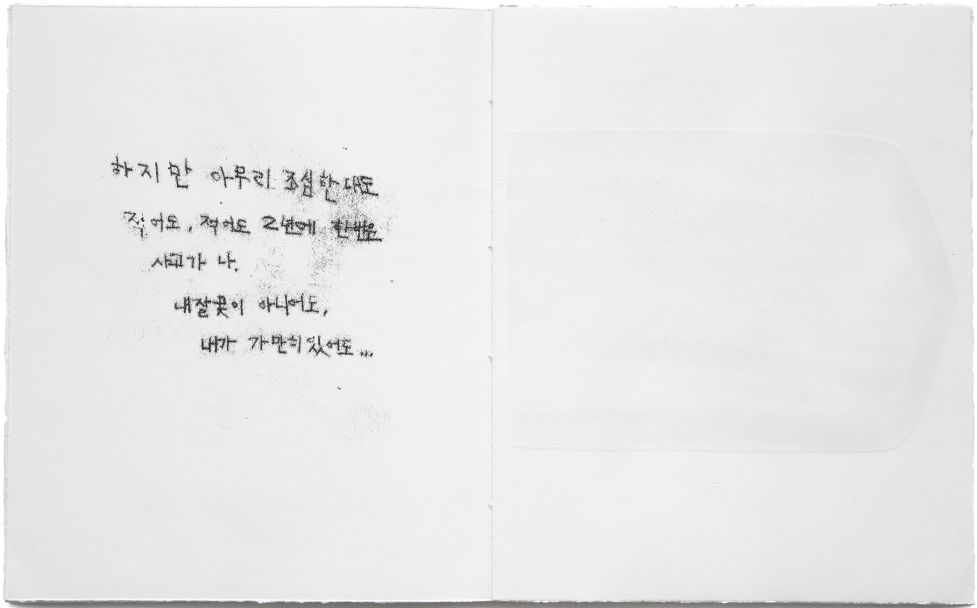 하지만 아무리 조심한대도
적어도, 적어도 2년에 한번은
사고가 나.
내잘못이 아니어도,
내가 가만히 있어도...